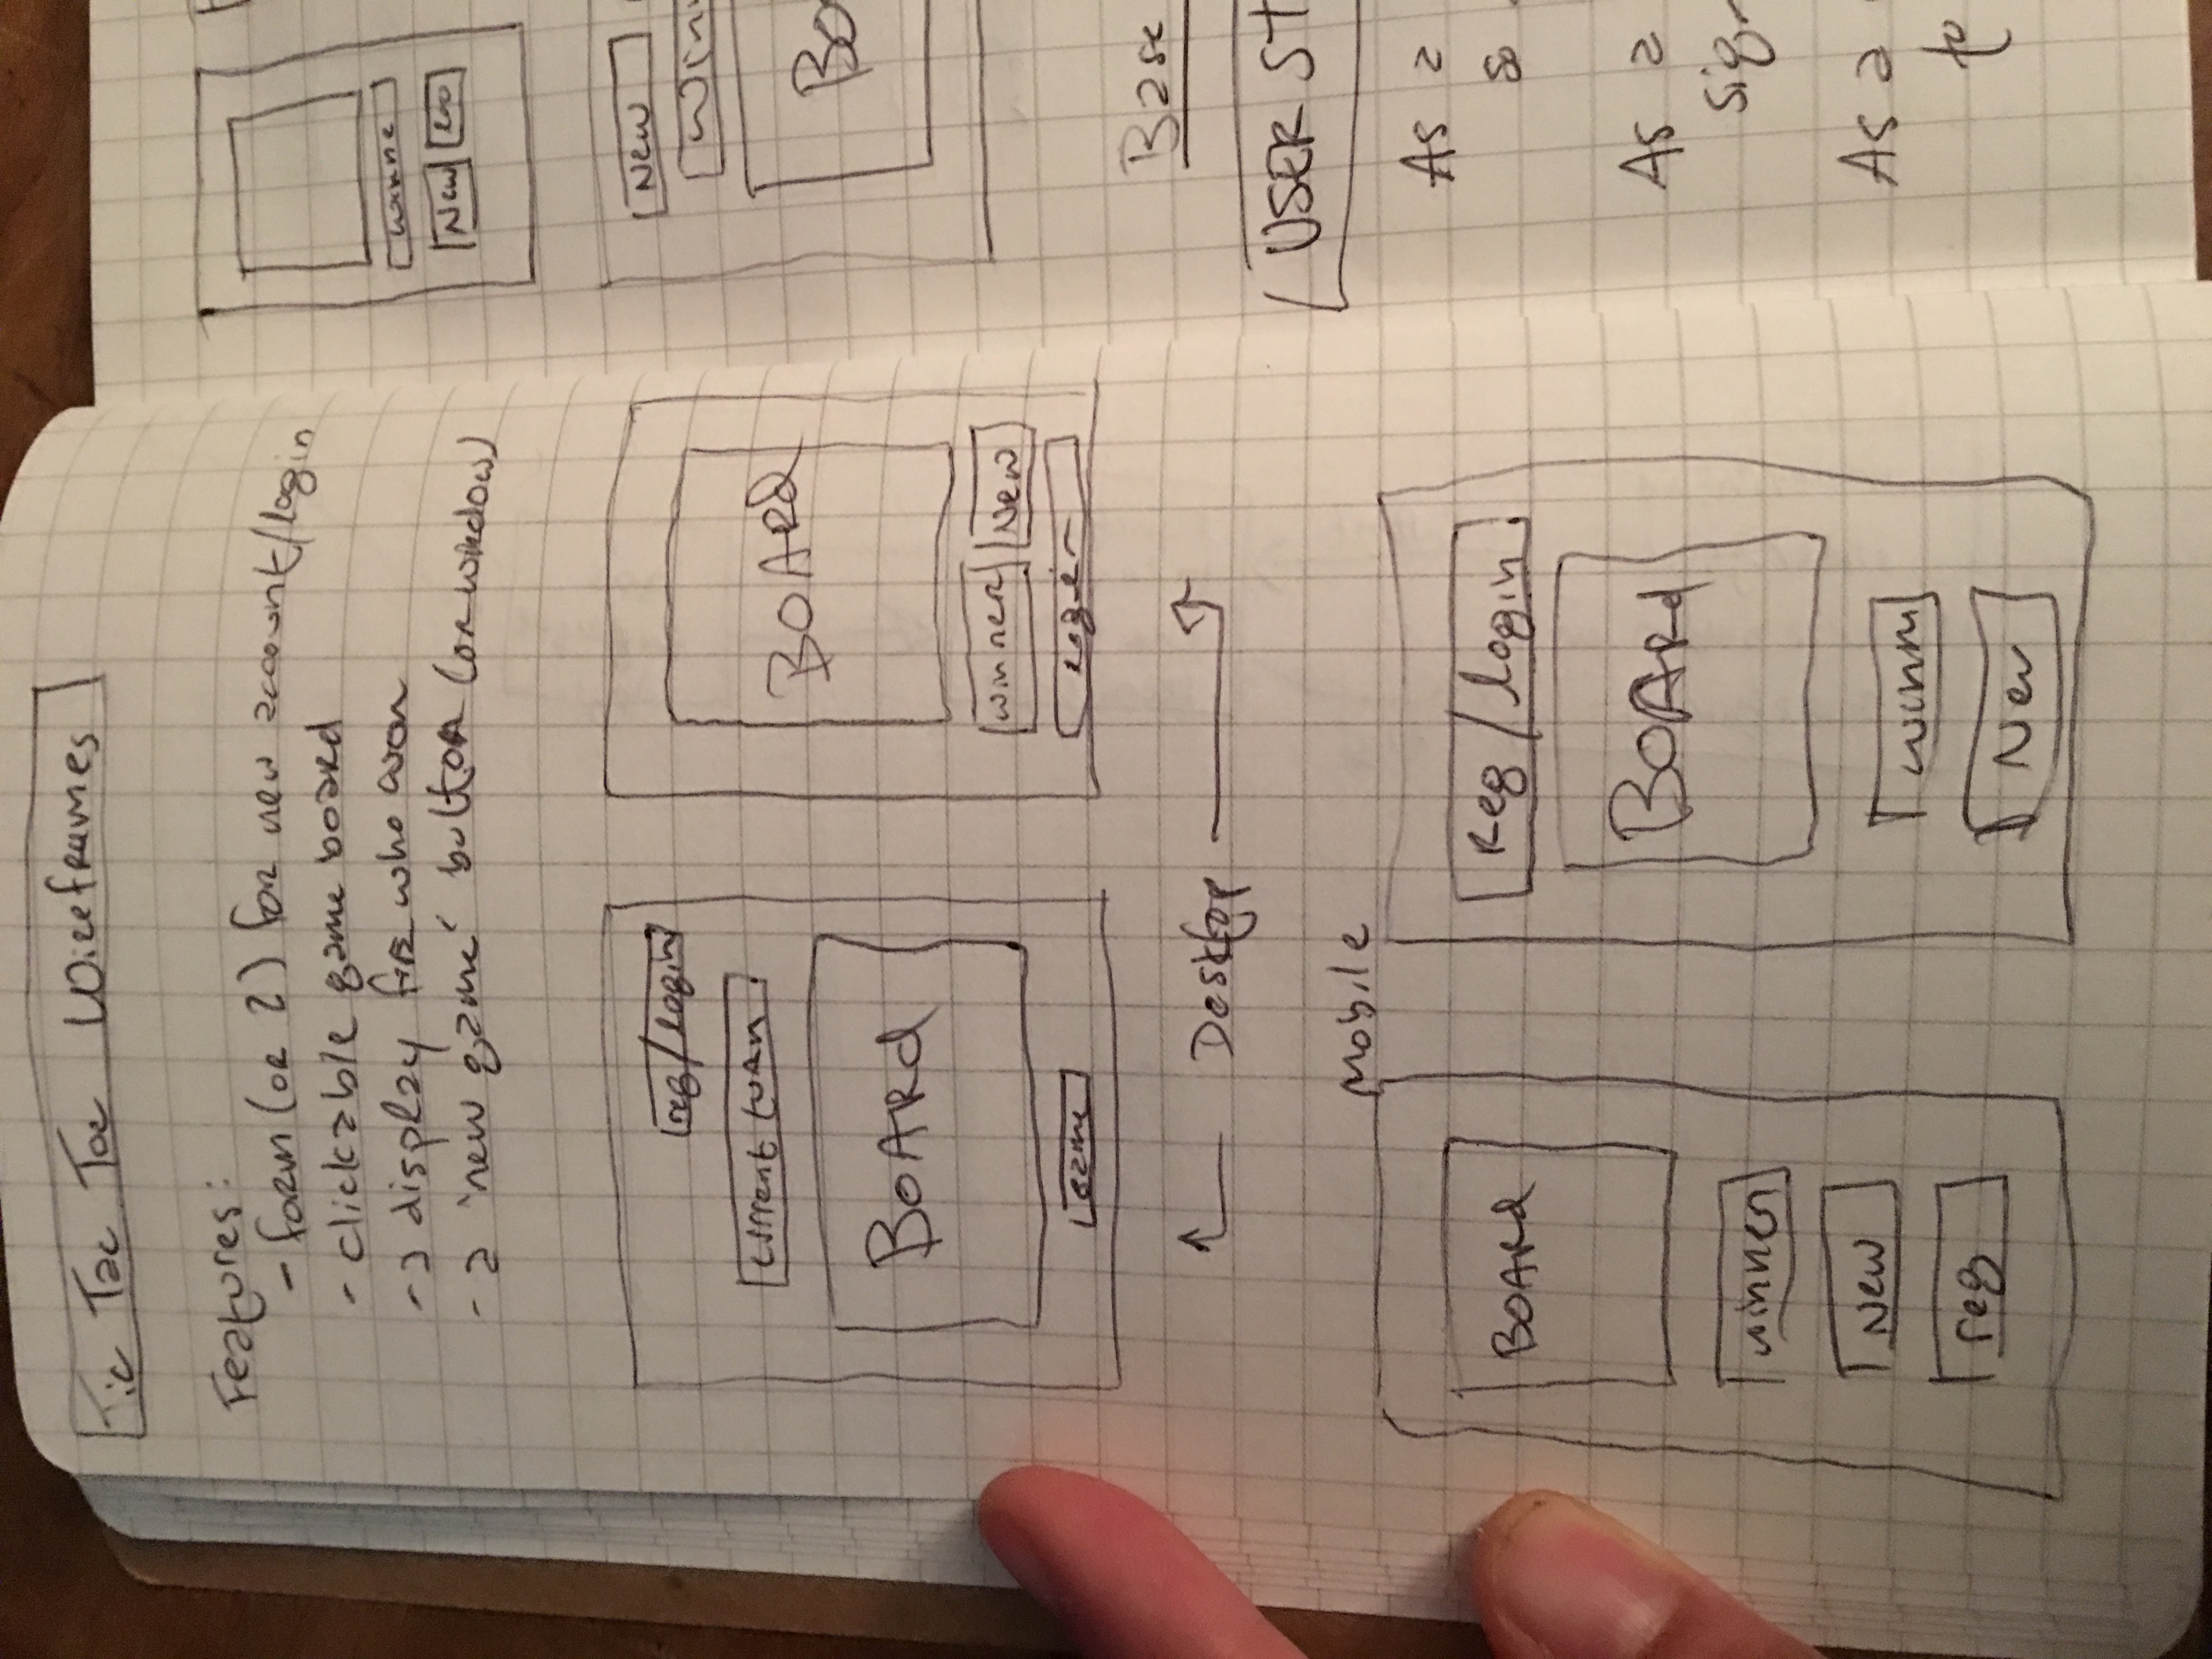 Tic Tac Toe Wireframes
Features:
- form (or 2) for new account/login
- clickable game board
- a display for who won
- a 'new game' button (or window)
reg/login
current turn
BOARd
game
BOARd
winner
New
login
Desktop
Mobile
BOARd
winner
New
reg
Reg/login
BOARd
New
winne
New
New
Winn
Bo
Base
USER ST
As a
so
As a
sign
As a
to